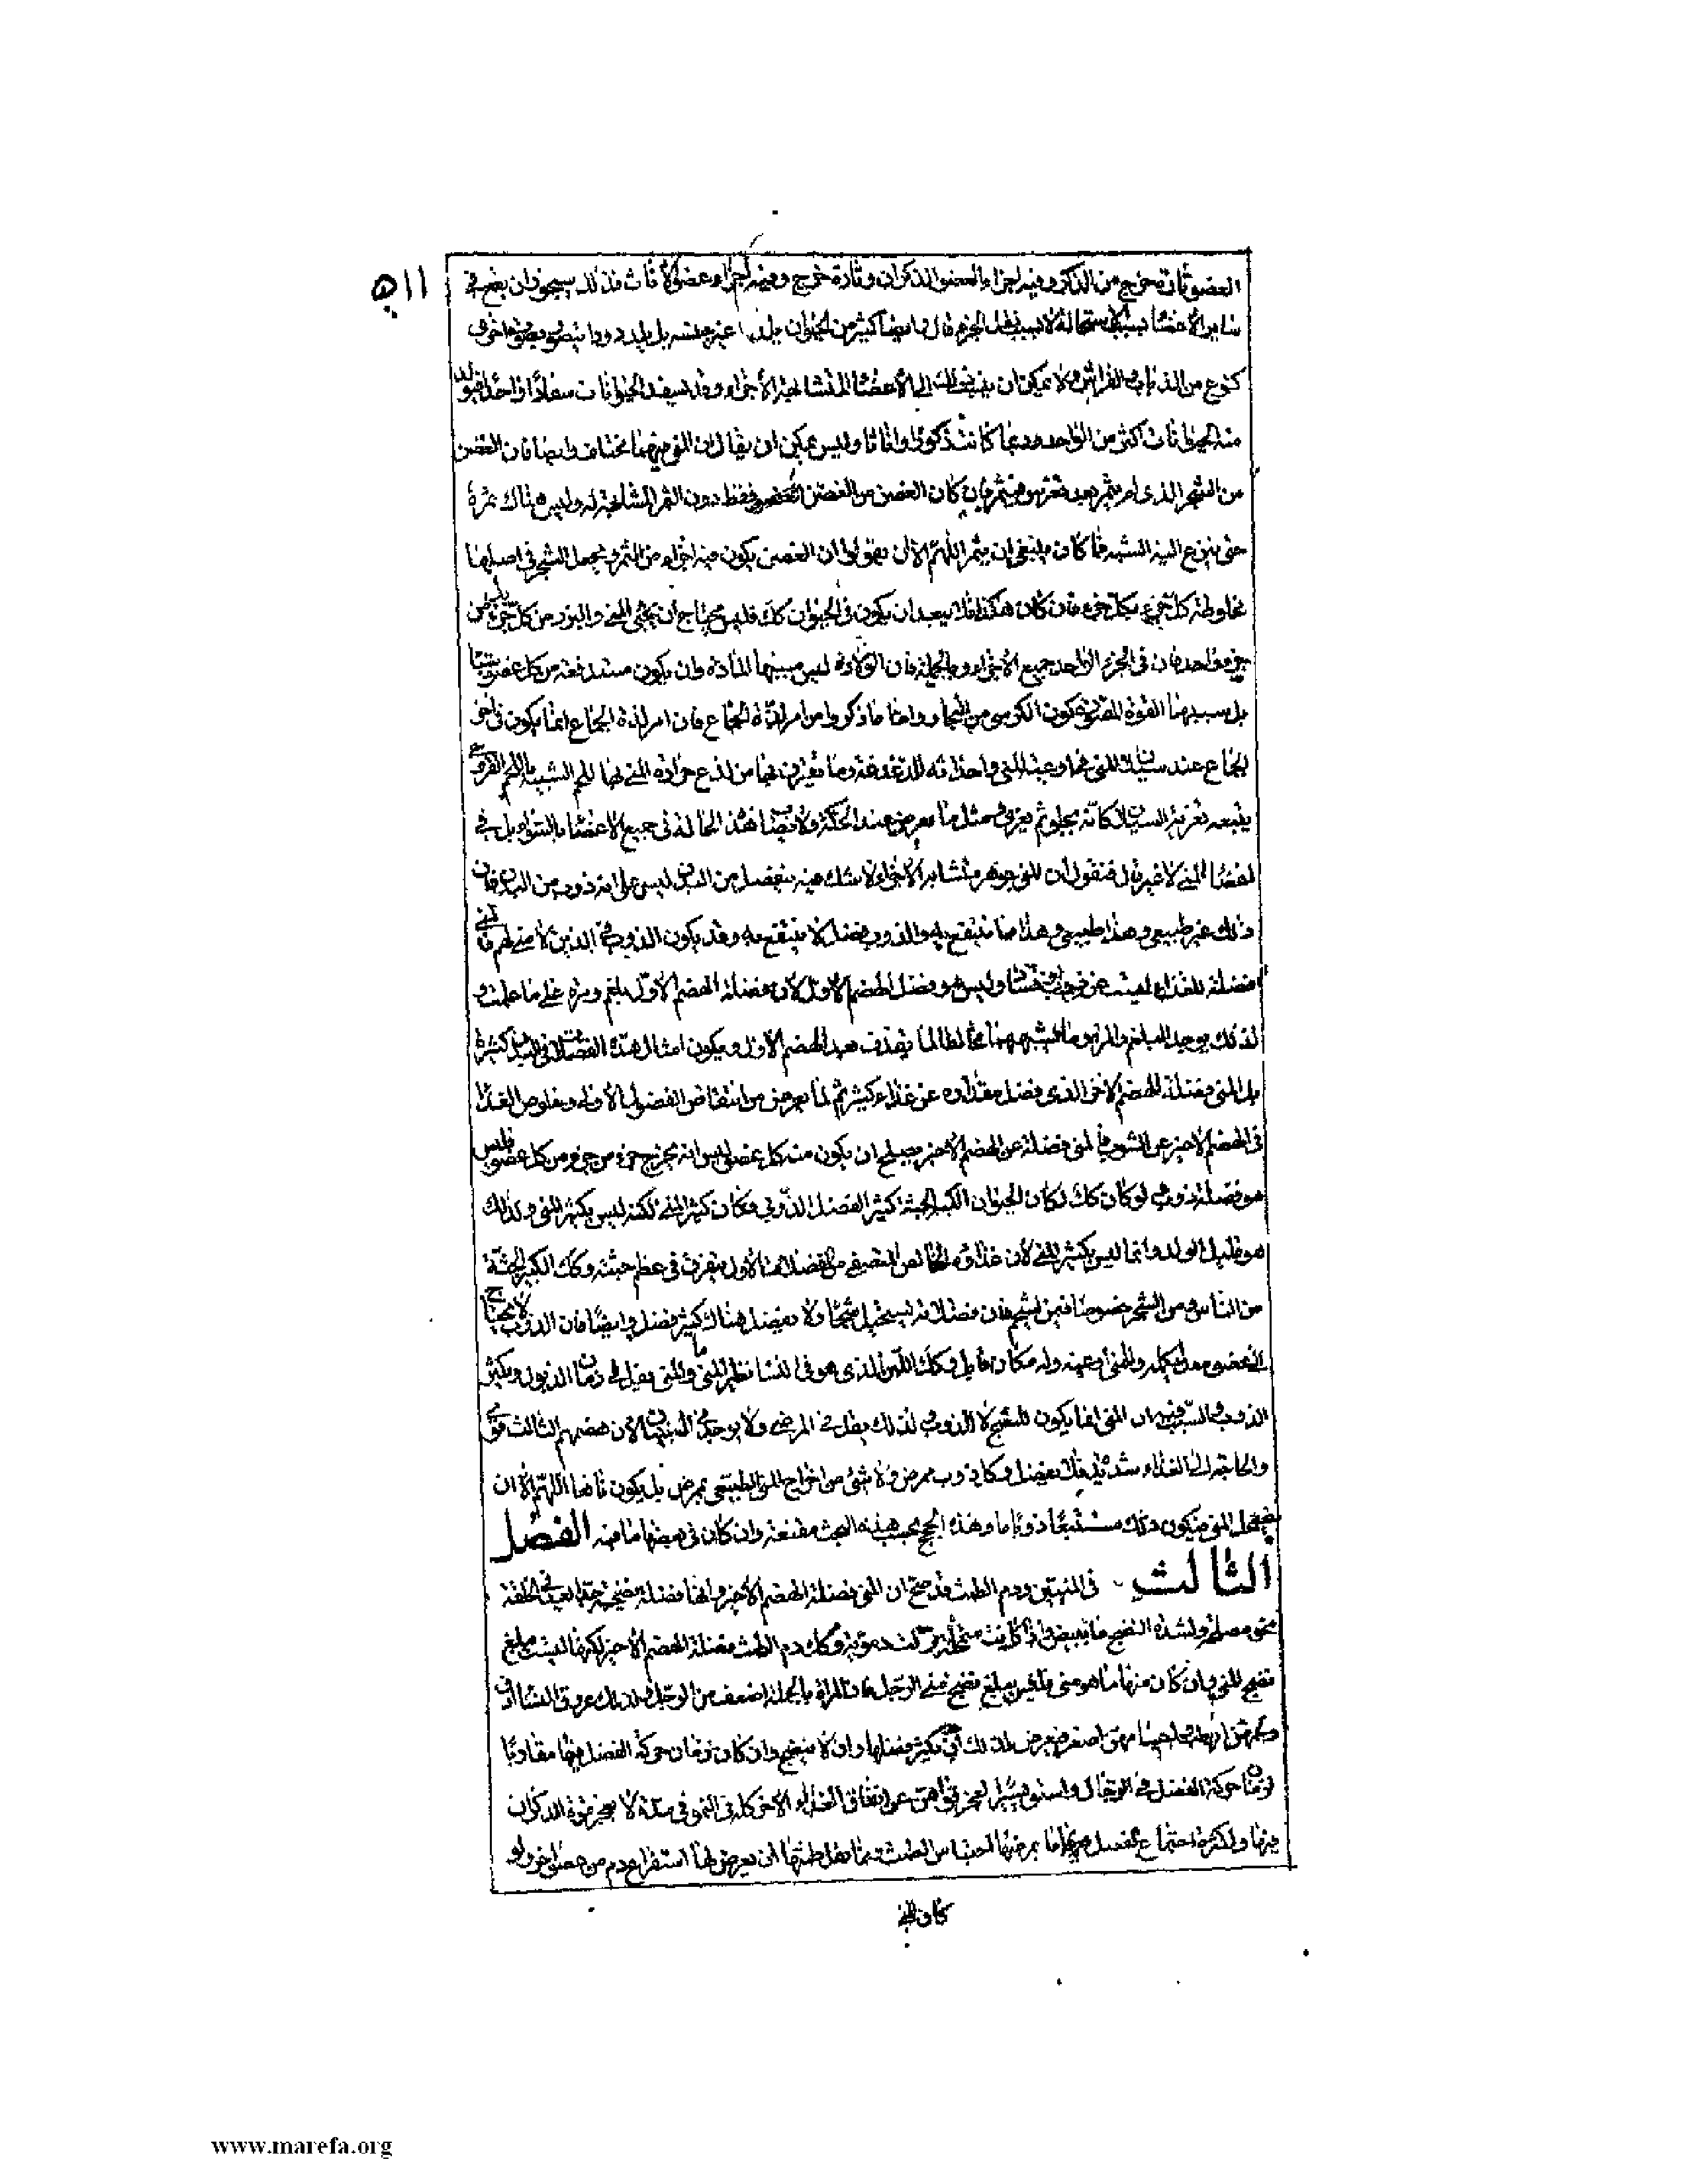 ٥١١
العضو تارة يخرج من الذكر وفيه اجزاء العضو الذكراني وتارة يخرج وفيه اجزاء عضو الاناث فذلك سيجوز ان يقع في
ساير الاعضا بسبب الاستحالة لا بسبب الجزء قال وايضا كثير من الحيوان يلد غير جنسه بل يلد دودا اخرى
كنوع من الذباب والفراش ولا يمكن ان ينسب ذلك الى الاعضا المتشابهة الاجزاء وقد يسفد الحيوانات سفادا واحدا فيولد
منه الحيوانات اكثر من الواحد وربما كانت ذكورا واناثا وليس يمكن ان يقال ان المنى فيهما مختلف وايضا فان الغصن
من الشجر الذى لم يثمر بعد يغرس فيثمر فان كان الغصن من الغصن فقط دون الثمر المشابهة له وليس هناك ثمرة
حتى ينزع اليه الشبه فما كان ينبغى ان يثمر اللهم الا ان يقولوا ان الغصن يكون فيه اجزاء من الثمر ويجعل الشجر في اصلها
مخلوطة كل جزء بكل جزء فان كان هكذا فلا يبعد ان يكون في الحيوان كك فليس يحتاج ان يجئى المنى والبزر من كل جزء بل من
جزء واحد فان في الجزء الواحد جميع الاجزاء وبالجملة فان الولادة ليس سببها المادة وان يكون مستدفعة من كل عضو شيئا
بل سببها القوة المصورة ككون الكرسى من النجار واما ما ذكروا من امر لذة الجماع فان امر لذة الجماع انما يكون في اخر
الجماع عند سيلان المنى في اوعية المنى واحداثه للدغدغة وما يقترن بها من لذع حرارة المنى لها للحم الشبيه باللحم القروحى
يتبعه تغرية السيلان كانه يجلو ثم يغرى مثل ما يعرض عند الحكة ولا ايضا هذه الحالة في جميع الاعضا بالسواء بل في
اعضا المنى لا غير قال فنقول ان المنى جوهر متشابه الاجزاء لا شك فيه ينفصل من البدن ليس على انه ذوب من البدن فان
ذلك غير طبيعى وهذا طبيعى وهذا مما ينتفع به والذوب فضل لا ينتفع به وقد يكون الذوب في الذين لا منى لهم فالمنى
فضلة للغذاء ليست عن ذوب وليس هو فضل الهضم الاول لان فضلة الهضم الاول بلغم ومرة على ما علمت و
لذلك يوجد البلغم والمرة وما اشبههما مخالطا لما يقذف بعد الهضم الاول ويكون امثال هذه الفضلات في البدن كثيرة
بل المنى فضلة الهضم الاخر الذى فضل مقداره عن غذاء كثير ثم لما يعرض من انتقاض الفضول الاوله وخلوص الغذا
في الهضم الاخير عن الشوب فالمنى فضلة عن الهضم الاخير يصلح ان يكون منه كل عضو ليس انه يخرج جزء من جزء ومن كل عضو فليس
هو فضلة ذوب لو كان كك لكان الحيوان الكبير الجثة كثير الفضل الذوبي فكان كثير المنى لكنه ليس بكثير المنى ولذلك
هو قليل الولد وانما ليس بكثير المنى لان غذاؤه الخالص المتصفى من الفضل الاول يتفرق في عظم جثته وكك الكبير الجثة
من الناس ومن الشجر خصوصا فيمن يشحم فان فضلاته يستحيل شحما ولا يفضل هناك كثير فضل وايضا فان الذوب لا يحتاج
الى عضو معد له كله والمنى اوعيته وله مكان قابل وكك اللبن الذى هو في النسا نظير المنى والمنى يقل في زمان الذبول ويكثر
الذوب والسبب فيه ان المنى انما يكون للنضج لا الذوب لذلك يقل في المرضى ولا يوجد في الصبيان لان هضمهم الثالث قوى
والحاجة الى الغذاء شديد فلا يفضل وكل ذوب ممرض ولا شئ من اخراج المنى الطبيعى بممرض بل يكون نافعا اللهم الا ان
يفضل المنى فيكون ذلك مستتبعا ذوبا ما وهذه الحجج بحسب هذه البحث مقنعة وان كان في بعضها ما فيه الفصل
الثالث في المنيين ودم الطمث قد صح ان المنى فضلة الهضم الاخير وانها فضلة نضيجة جدا
ولشدة النضج ما يبيض واذا كانت دموية وكك دم الطمث فضلة الهضم الاخير لكنها ليست مبلغ
نضج المنى وان كان منها ما هو منى فليس مبلغ نضجه نضج منى الرجل فان المراة بالجملة اضعف من الرجل ولذلك عروق النسا ادق
واصغر فيعرض لذلك ان يكثر فضلها وان لا ينضج وان كان زمان حركة الفضل فيها مقاربا
لزمان حركة الفضل في الرجال لعجز قواهن عن انفاق الغذاء الاخر كله في النمو في مدة لا يعجز قوة الذكران
فيها ولكثرة اجتماع الفضل فيها ما يعرض لها احتباس الطمث ان يعرض لها استفراغ دم من عضو اخر ولو
كان المنى
www.marefa.org